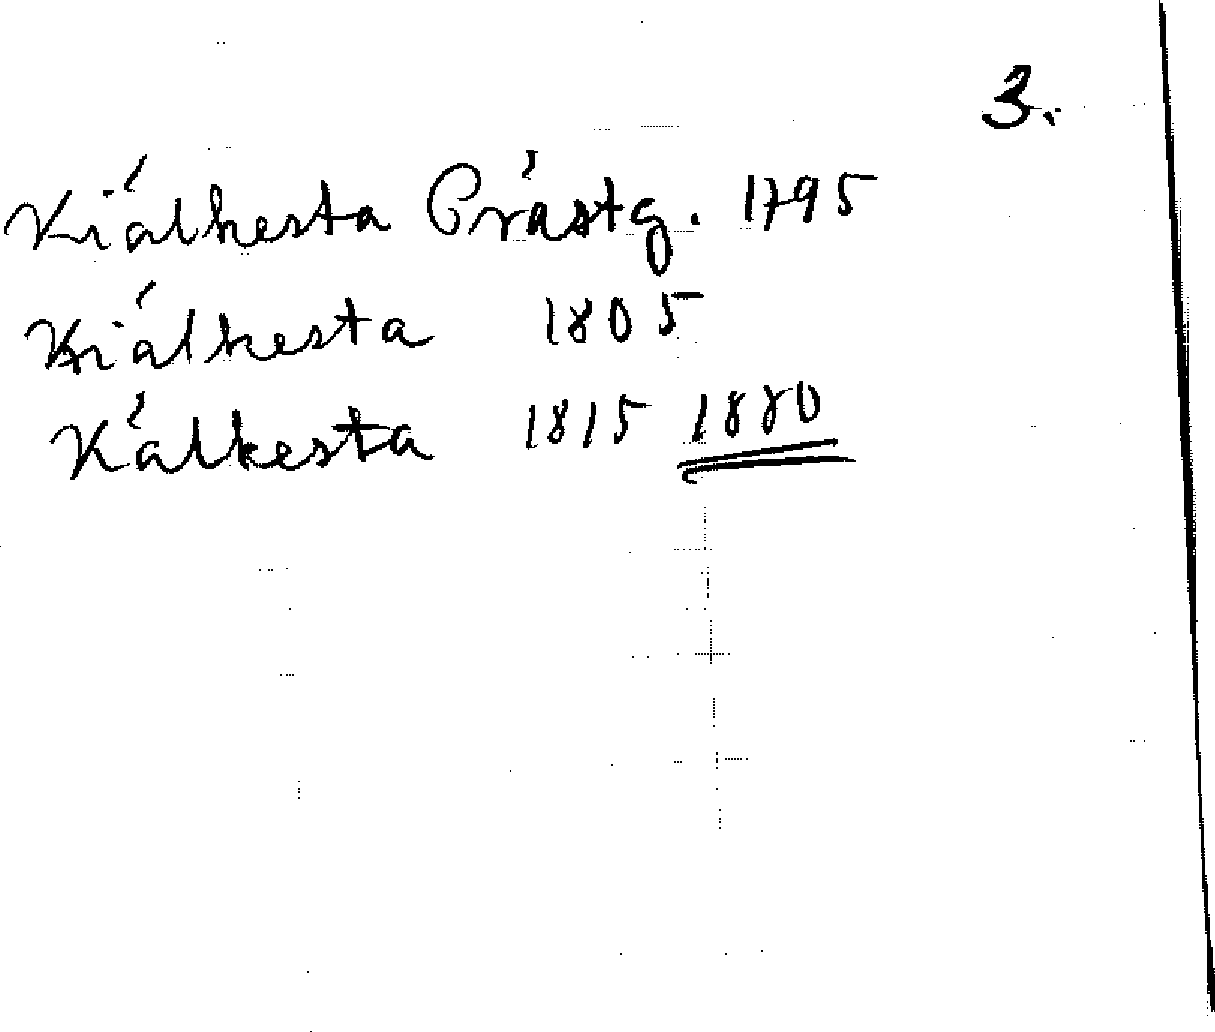 3.
Kiälkesta Prästg. 1795
Kiälkesta 1805
Kälkesta 1815 1880